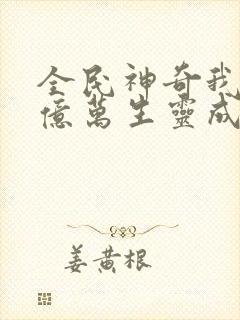 全民神奇我
億萬生靈成
姜黄根